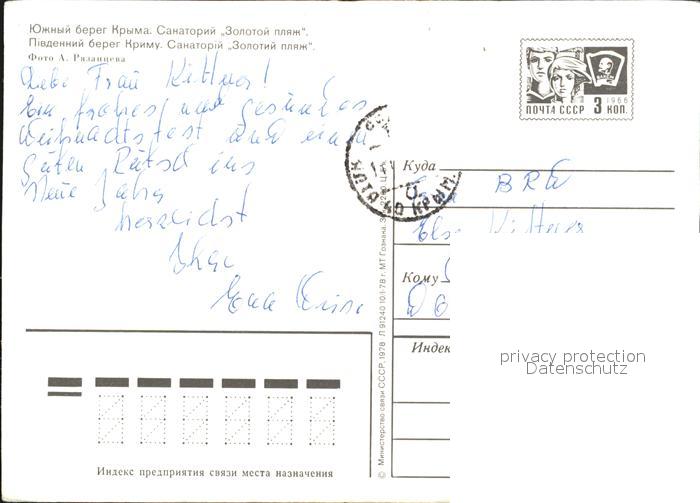 Южный берег Крыма. Санаторий „Золотой пляж".
Південний берег Криму. Санаторій „Золотий пляж".
Фото А. Рязанцева
Liebe Frau Kittner!
Ein frohes und gesundes
Weihnachtsfest und einen
guten Rutsch ins
Neue Jahr!
herzlichst
Ihre
ПОЧТА СССР 3 КОП.
1966
ЯЛТА КРЫМ.
Куда
BRD
Кому
Индек
privacy protection
Datenschutz
© Министерство связи СССР, 1978 Л 91240 10/I-78 г. МТ Гознака.
Индекс предприятия связи места назначения